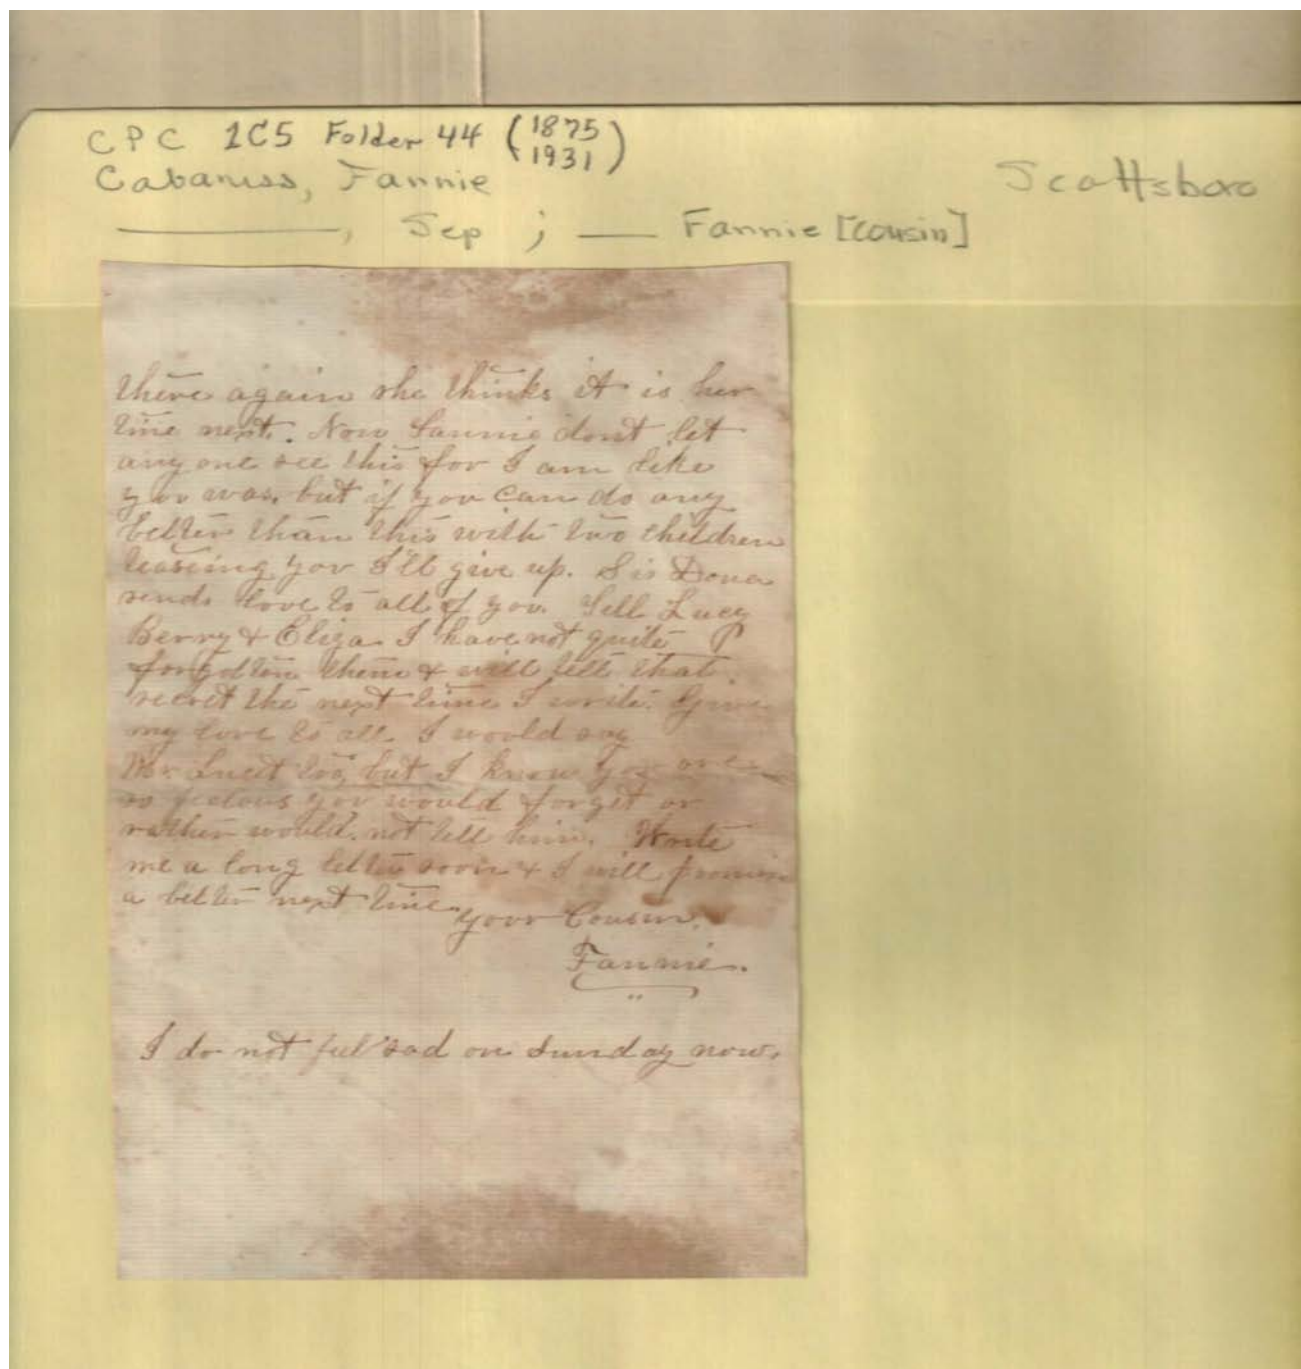 CPC 1C5 Folder 44 (1875
1931)
Cabaniss, Fannie
Scottsboro
, Sep ; Fannie [cousin]
there again she thinks it is her
time next. Now Fannie dont let
any one see this for I am like
you was, but if you can do any
better than this with two children
teaseing you I'll give up. Sis Dona
sends love to all of you. Tell Lucy
Berry & Eliza I have not quite
forgotten them & will tell that
secret the next time I write. Give
my love to all. I would say
Mr. too, but I know you are
so jelous you would forget or
rather would not tell him. Write
me a long letter soon & I will promise
a better next time.
your Cousin.
Fannie.
I do not feel sad on Sunday now.